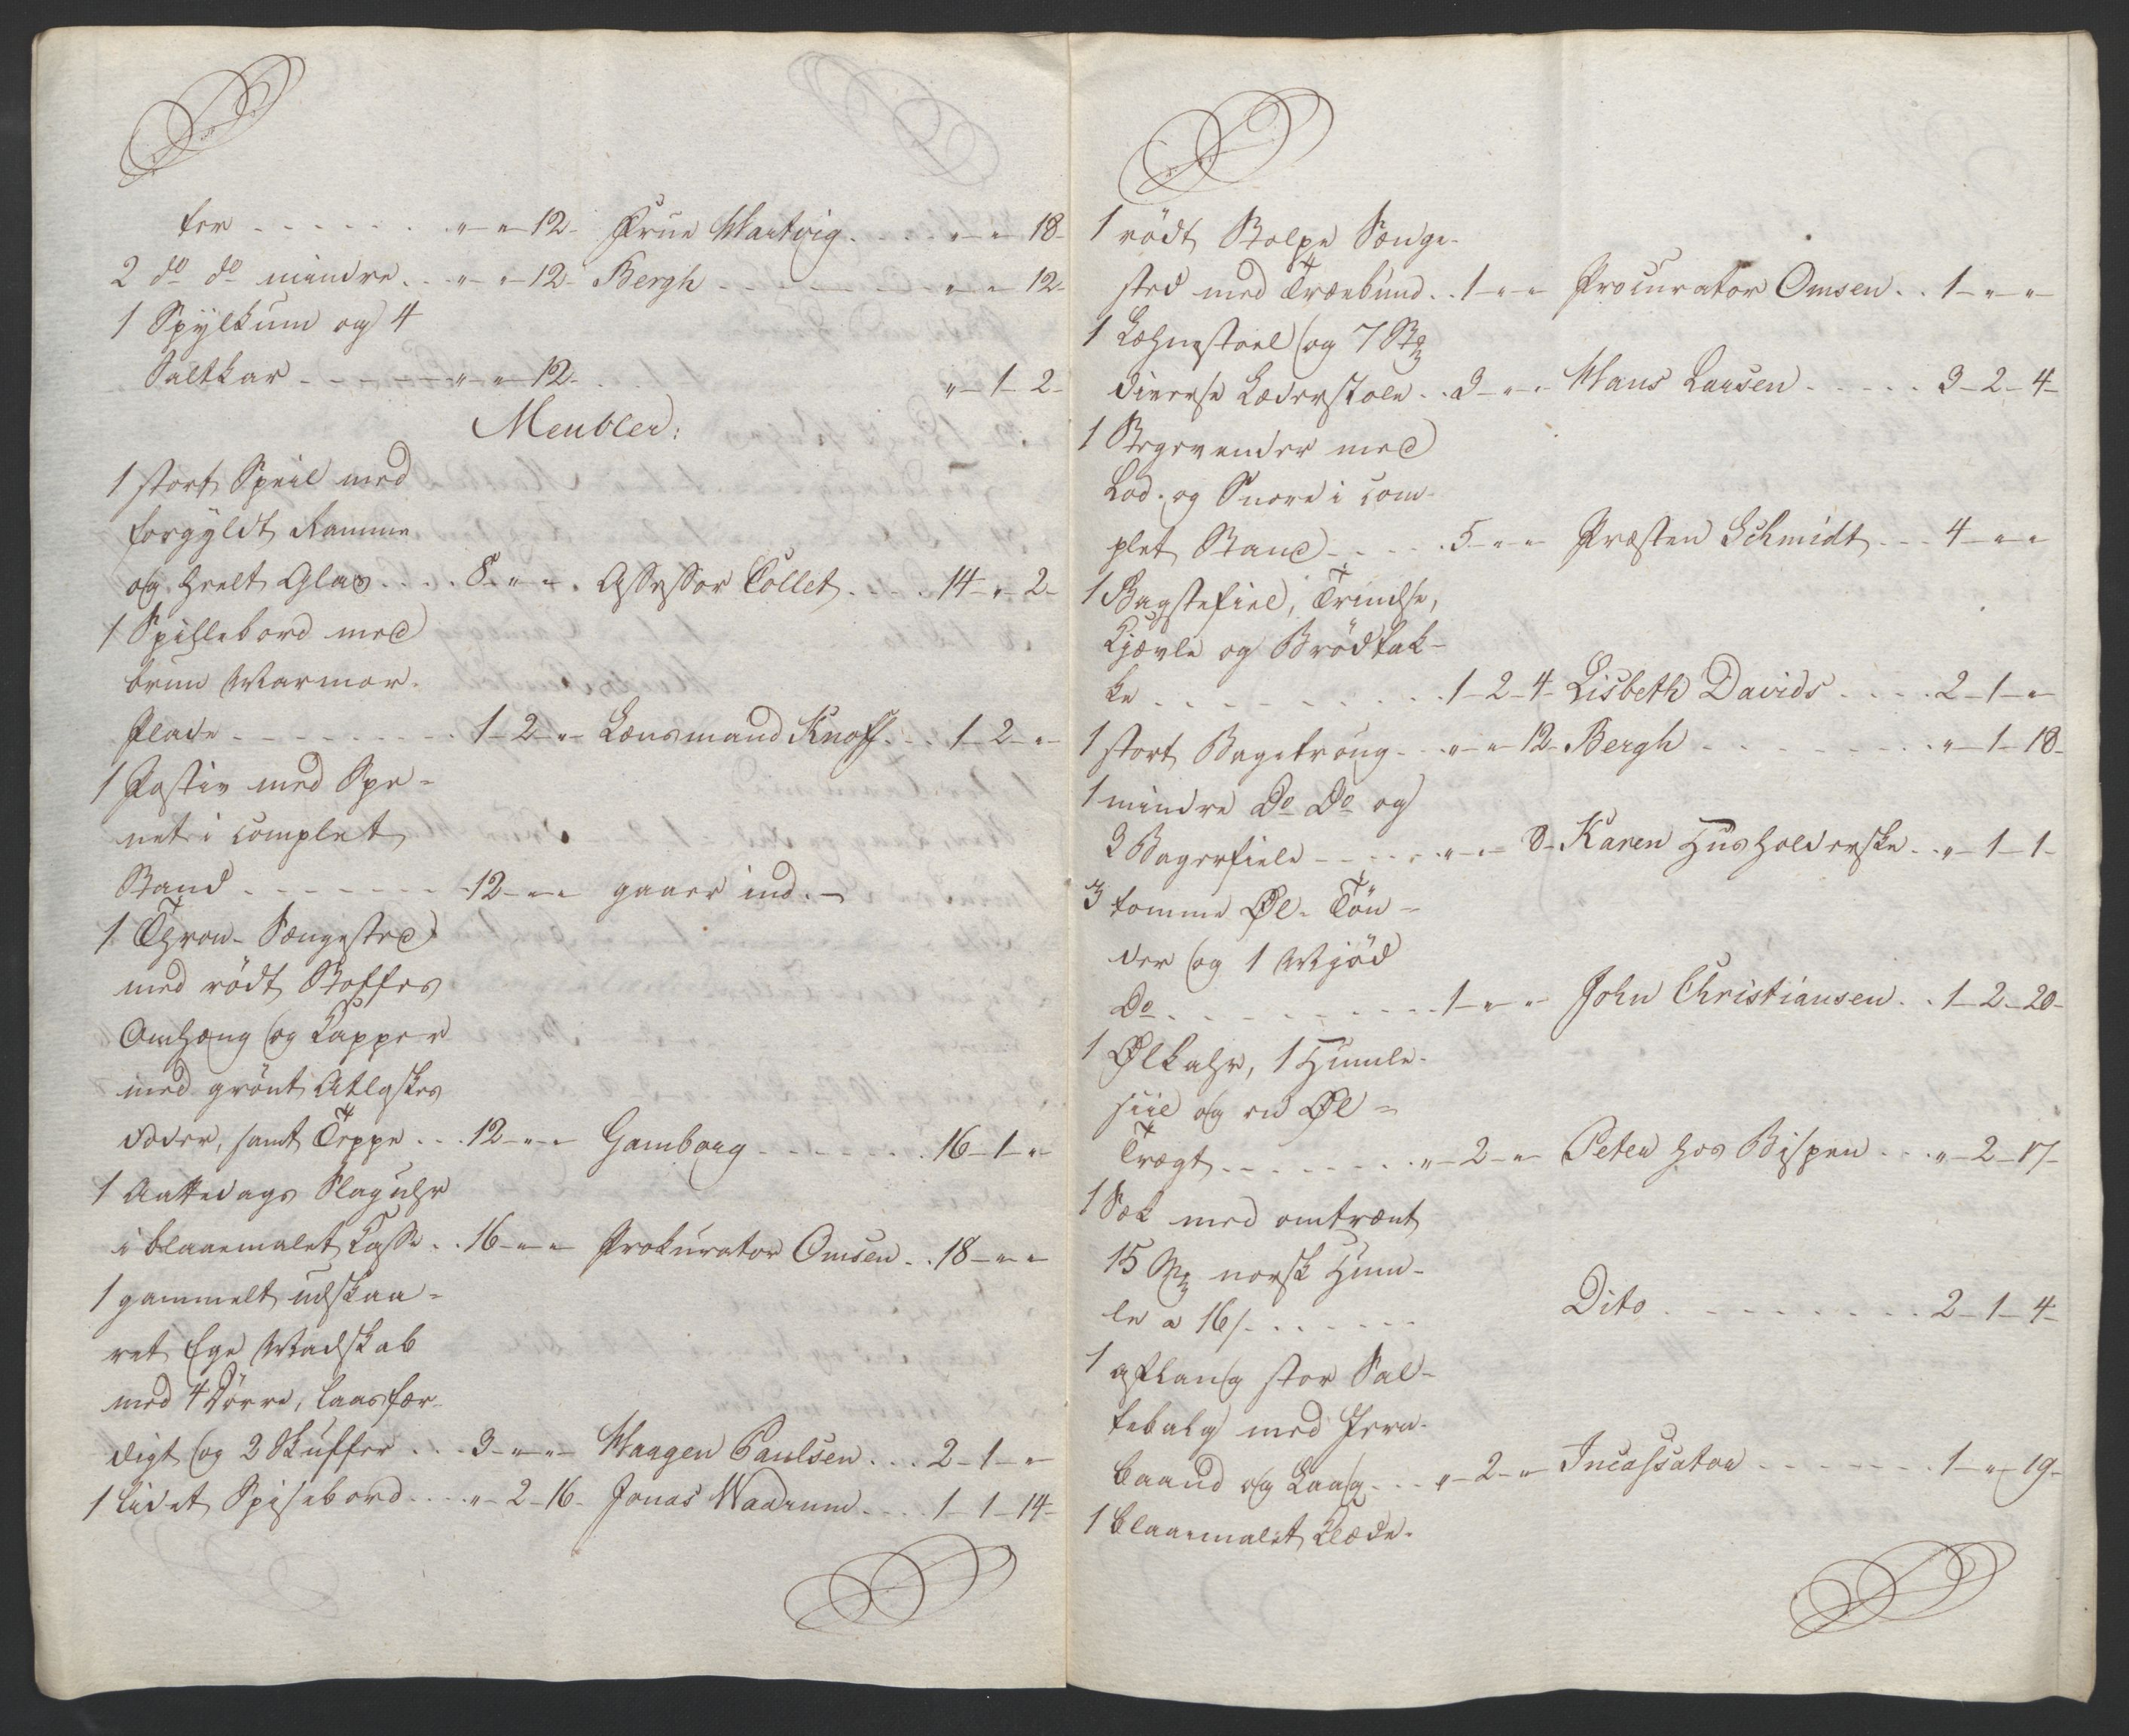 ter . . . . . . „ - „ - 12 - Frue Hartvig . . . . „ - „ 18 -
2 do do mindre . . „ - „ - 12 - Bergh . . . . . „ - „ 12 -
1 Spylkum og 4
Saltkar - - - - - „ - „ - 12 - . „ - 1 - 2 -
Meubler:
1 stort Speil med
forgyldt Ramme
og heelt Glas . . . . 8 - „ - „ . Assessor Collet . . . . 14 - „ - 2 -
1 Spillebord med
bruun Marmor-
Plade - - - - - - - - 1 - 2 - „ - Lænsmand Knoff . . . 1 - 2 - „ -
1 Positiv med Spe-
net i complet
Stand . - - - - - - 12 - „ - „ gaaer ind. -
1 Thron-Sængested
med rödt Stoffes
Omhæng og Kapper
med grönt Atlaskes
Foder, samt Teppe . . . 12 - „ - „ Gamborg - - - - - - . . 16 - 1 - „ -
1 Aattedags Slaguhr
i blaaemalet Casse . . 16 - „ - „ Prokurator Omsen . . 18 - „ - „ -
1 gammelt udskaa-
ret Ege Madskab
med 4 Dörre, laasfær-
digt og 2 Skuffer . . . 3 - „ - „ - Haagen Paulsen . . . 2 - 1 - „ -
1 lidet Spisebord . . . „ - 2 - 16 - Jonas Waarum . . . . 1 - 1 - 14 -
1 rödt Stolpe Senge-
sted med Træebund . . 1 - „ - „ Procurator Omsen . . 1 - „ - „ -
1 Lehnestoel og 7 Stk
diverse Læderstole . . 3 - „ - „ Hans Larsen . . . . . 3 - 2 - 4 -
1 Stegevender med
Lod- og Snore i com-
plet Stand - . . . . 5 - „ - „ Præsten Schmidt . . . 4 - „ - „
1 Bagstefiel, Trindse,
Kjævle og Brödtak-
ke . . . . - - . . . 1 - 2 - 4 - Lisbeth Davids . . . . . 2 - 1 - „ -
1 stort Bagetroug . . „ - „ - 12 - Bergh - - . - - - - - . „ - 1 - 18 -
1 mindre Do Do og
3 Bagerfiele - - - . . „ - „ - 8 - Karen Husholderske . . „ - 1 - 1 -
3 tomme Øl-Tön-
der og 1 Mjöd
Do . . . . - - - - . . 1 - „ - „ - John Christiansen . . 1 - 2 - 20 -
1 Ølkahr, 1 Humle-
siil og en Øl-
Trægt . . . - - - - . . „ - 2 - „ - Peter hos Bispen . . . „ - 2 - 17 -
1 Sæk med omtrent
15 Mk norsk Hum-
le a 16 s . . . . . . . Dito . - - - - - - . . 2 - 1 - 4 -
1 aflang stor Sal-
tebalg med Jern-
baand og Laag . . . „ - 2 - „ - Incassator - - - - - . . 1 - „ - 19 -
1 blaaemalet Klæde-